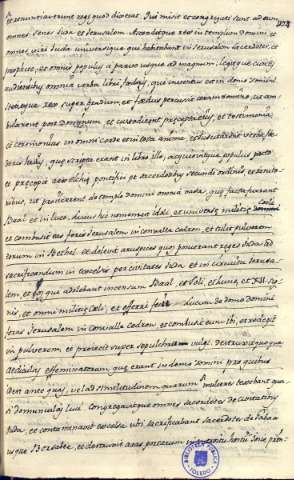 et renuntiaverunt regi quod dixerat. Qui misit et congregati sunt ad eum
omnes senes Iuda et Ierusalem. Ascenditque rex in templum domini, et
omnes viri Iuda universique qui habitabant in Ierusalem sacerdotes, et
prophetæ, et omnis populus a parvo usque ad magnum, legitque cunctis
audientibus omnia verba libri fœderis, qui inventus est in domo domini
stetitque rex super gradum, et fœdus percussit coram domino, ut am-
bularent post dominum et custodirent præcepta eius, et testimonia
et ceremonias in omni corde et in tota anima, et suscitarent verba fœ-
deris huius, quæ scripta erant in libro illo, acquievitque populus pacto
et præcepit rex Helchiæ pontifici et sacerdotibus secundi ordinis, et ianito-
ribus, ut proiicerent de templo domini omnia vasa, quæ facta fuerant
Baal et in luco, et universæ militiæ cœli
et combussit ea foris Ierusalem in convalle Cedron, et tulit pulverem
eorum in Bethel. et delevit aruspices quos posuerant reges Iuda ad
sacrificandum in excelsis per civitates Iuda, et in circuitu Ierusa-
lem, et eos qui adolebant incensum Baal, et soli, et lunæ, et XII. sig-
nis, et omni militiæ cœli, et efferri fecit lucum de domo domini
foras Ierusalem in convalle Cedron, et combussit eum ibi, et redegit
in pulverem, et proiecit super sepulchra vulgi, destruxit quoque
ædiculas effeminatorum, quæ erant in domo domini pro quibus
mulieres texebant qua-
si domunculas luci. Congregavitque omnes sacerdotes de civitatibus
Iuda, et contaminavit excelsa ubi sacrificabant sacerdotes de Gabaa
usque Bersabee, et destruxit aras portarum in introitu
BIBLIOTECA PUBLICA
TOLEDO